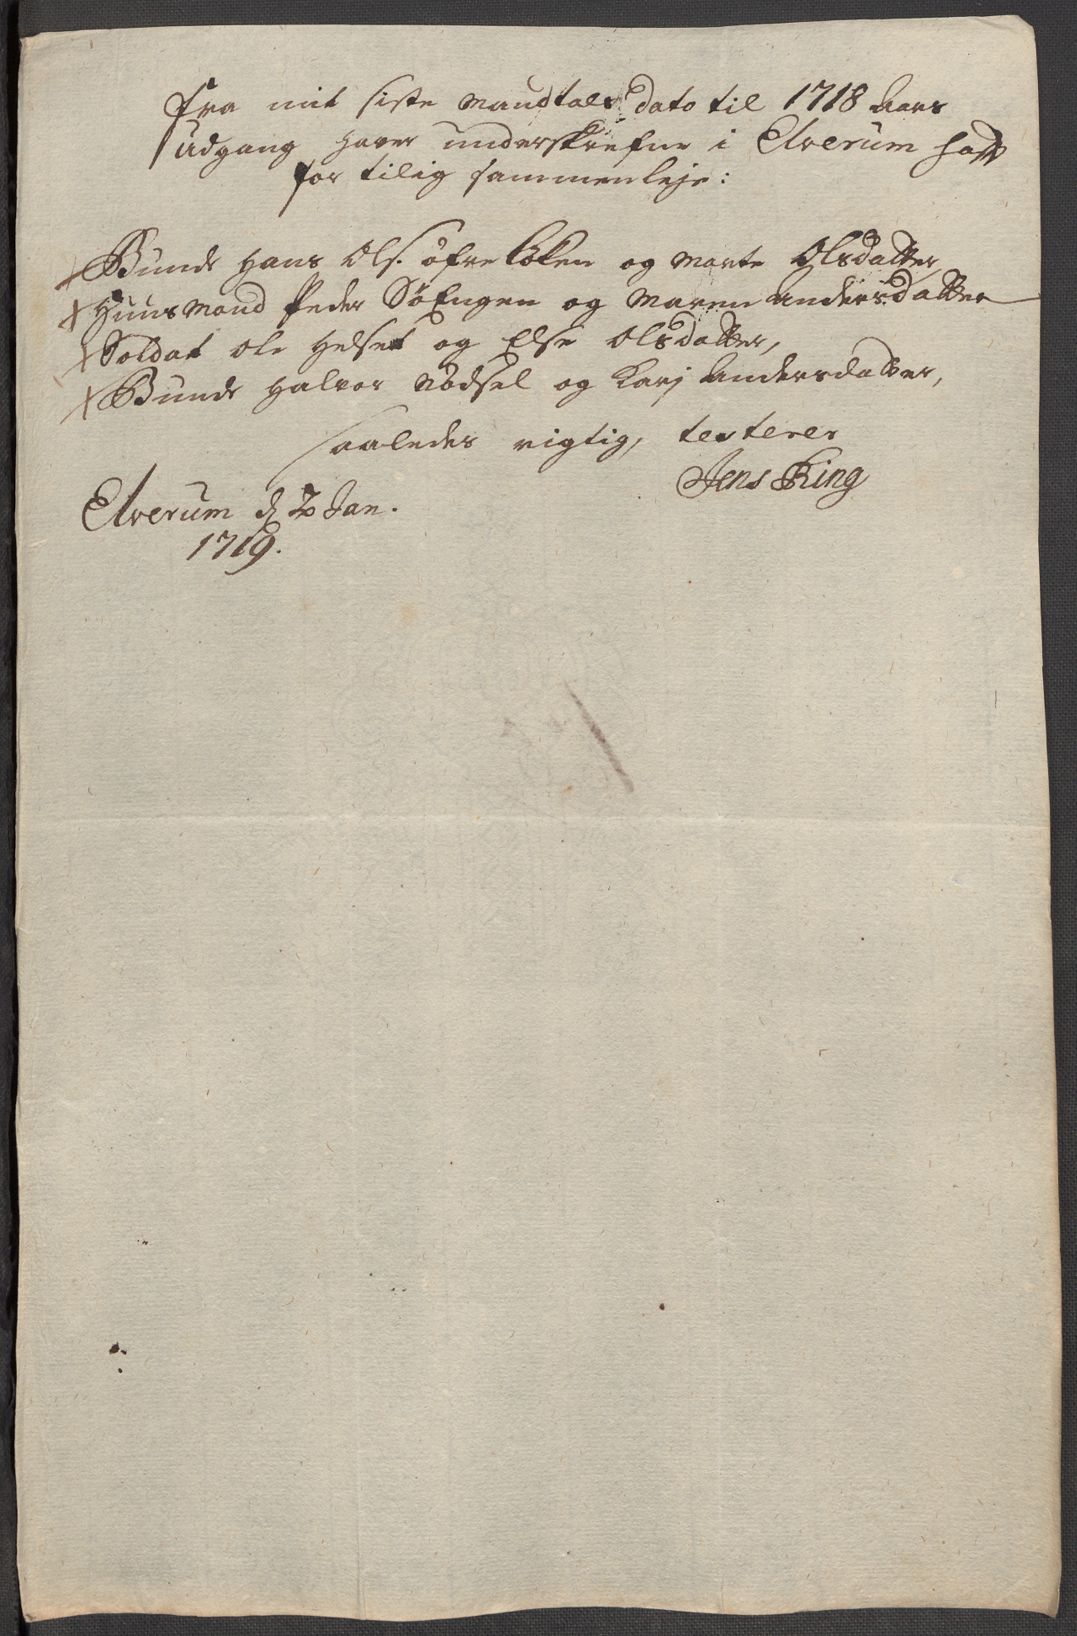 Fra mit siste Mandtals dato til 1718 Aars
Udgang haver underskrefne i Elverum hafft
for tilig sammenleje:
Bunde Hans Ols. Øfre Løken og Marte Olsdatter
Huusmand Peder Søengen og Maren Andersdatter
Soldat Ole Helset og Else Olsdatter,
Bunde Halvor Nødsel og Karj Andersdatter,
saaledes rigtig, testerer
Jens Ring
Elverum d 2 Jan.
1719.